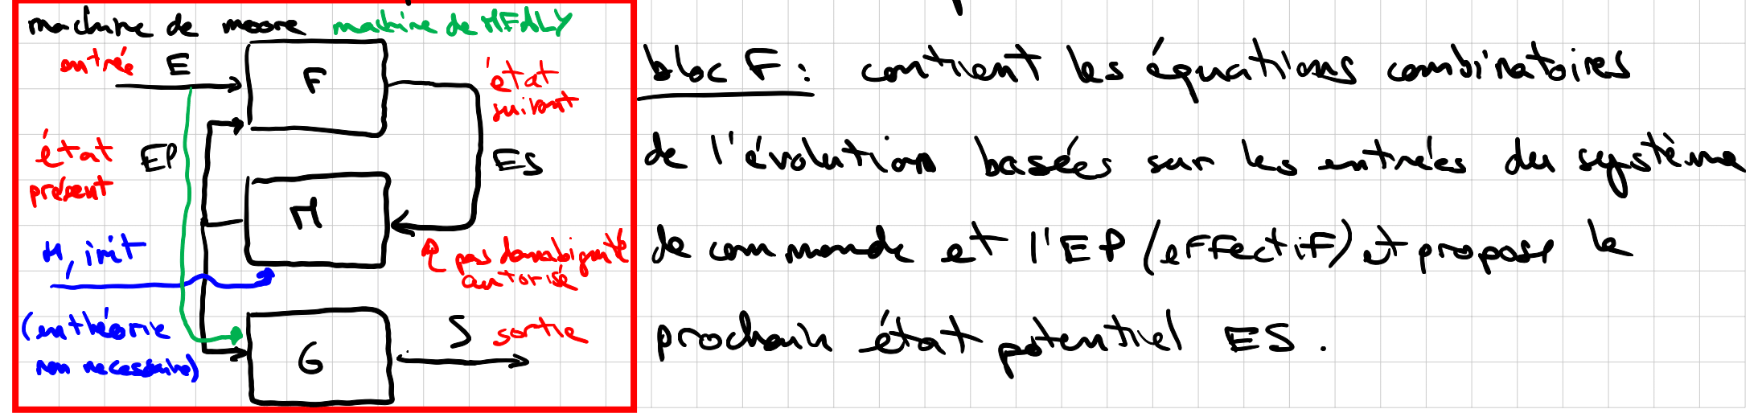 machine de moore machine de MEALY
entrée E
F
état
suivant
état
présent
EP
ES
M
H, init
pas d'ambiguité
autorisé
(en théorie
non necessaire)
G
S sortie
bloc F : contient les équations combinatoires
de l'évolution basées sur les entrées du système
de commande et l'EP (effectif) et propose le
prochain état potentiel ES.